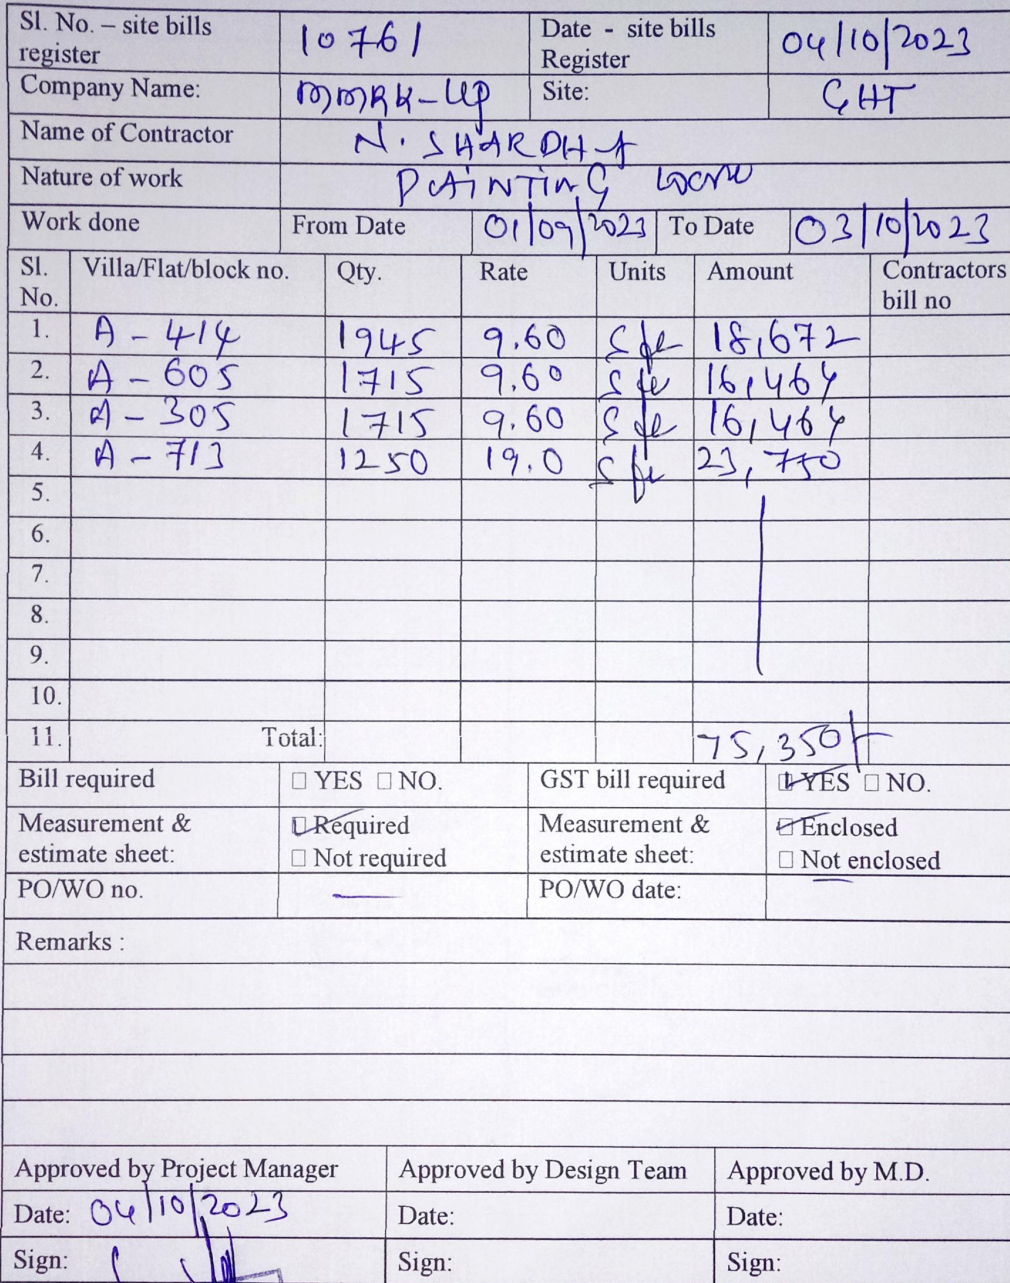 Sl. No. – site bills register 10761 Date - site bills Register 04/10/2023
Company Name: MMRK-UP Site: GHT
Name of Contractor N. SHARDHA
Nature of work PAINTING work
Work done From Date 01/09/2023 To Date 03/10/2023
Sl. No. Villa/Flat/block no. Qty. Rate Units Amount Contractors bill no
1. A - 414 1945 9.60 Sft 18,672
2. A - 605 1715 9.60 Sft 16,464
3. A - 305 1715 9.60 Sft 16,464
4. A - 713 1250 19.0 Sft 23,750
5.
6.
7.
8.
9.
10.
11. Total: 75,350/-
Bill required □ YES □ NO. GST bill required ☑ YES □ NO.
Measurement & estimate sheet: ☑ Required □ Not required Measurement & estimate sheet: ☑ Enclosed □ Not enclosed
PO/WO no. — PO/WO date:
Remarks :
Approved by Project Manager Approved by Design Team Approved by M.D.
Date: 04/10/2023 Date: Date:
Sign: Sign: Sign: